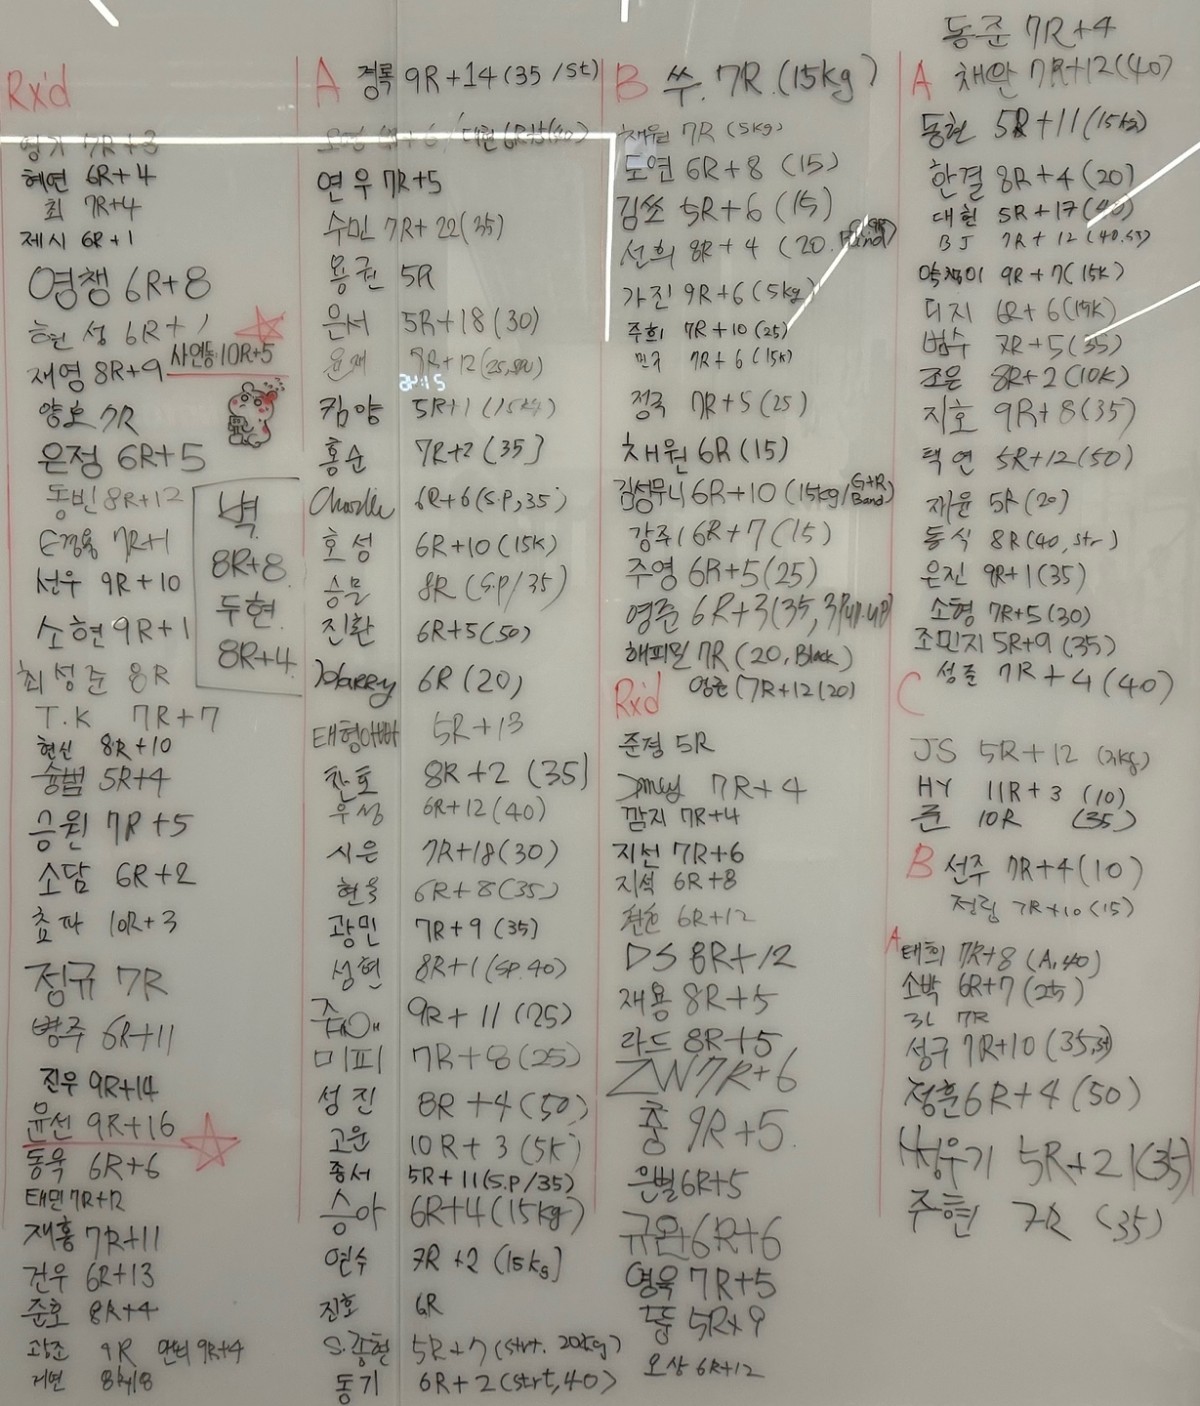 Rx'd
7R+3
혜연 6R+4
최 7R+4
제시 6R+1
영챙 6R+8
현성 6R+7
사연동 10R+5
재영 8R+9
양호 7R
은정 6R+5
동빈 8R+12
7R+1
선우 9R+10
소현 9R+1
벽
8R+8
두현
8R+4
최성준 8R
T.K 7R+7
현신 8R+10
승범 5R+4
승원 7R+5
소담 6R+2
쵸파 10R+3
정규 7R
병주 6R+11
진우 9R+14
윤선 9R+16
동욱 6R+6
태민 7R+12
재홍 7R+11
건우 6R+13
준호 8R+4
광조 9R 9R+4
지연
A 경록 9R+14 (35/st)
대현
연우 7R+5
수민 7R+22 (35)
용권 5R
은서 5R+18 (30)
윤재
킴양 5R+1 (15k)
홍순 7R+2 (35)
Charlie 6R+6 (S.P, 35)
호성 6R+10 (15K)
승물 8R (S.P/35)
진환 6R+5 (50)
Harry 6R (20)
태형아빠 5R+13
찬호 8R+2 (35)
우성 6R+12 (40)
시은 7R+18 (30)
현욱 6R+8 (35)
광민 7R+9 (35)
성현 8R+1 (SP.40)
9R+11 (25)
미피 7R+8 (25)
성진 8R+4 (50)
고운 10R+3 (5K)
종서 5R+11 (S.P/35)
승아 6R+4 (15kg)
연수 7R+2 (15kg)
진호 6R
S.종현 5R+7 (strt. 20kg)
동기 6R+2 (strt, 40)
B 쑤. 7R (15kg)
채원 7R (5kg)
도연 6R+8 (15)
김쏘 5R+6 (15)
선희 8R+4 (20. Band)
가진 9R+6 (5kg)
주희 7R+10 (25)
민주 7R+6 (15K)
정국 7R+5 (25)
채원 6R (15)
김성무니 6R+10 (15kg/G+R Band)
강주 6R+7 (15)
주영 6R+5 (25)
영준 6R+3
해피원 7R (20, Black)
영준 (7R+12 (20)
Rx'd
준경 5R
7R+4
깜지 7R+4
지선 7R+6
지석 6R+8
찬호 6R+12
DS 8R+12
재용 8R+5
라드 8R+5
ZW 7R+6
충 9R+5
은별 6R+5
규완 6R+6
영욱 7R+5
뚱 5R+9
오상 6R+12
동준 7R+4
A 채안 7R+12 (40)
동현 5R+11 (15kg)
한결 8R+4 (20)
대현 5R+17 (40)
BJ 7R+12
9R+7 (15K)
디지 6R+6 (15K)
범수 7R+5 (35)
조은 8R+2 (10K)
지호 9R+8 (35)
택연 5R+12 (50)
재윤 5R (20)
동식 8R (40, str)
은진 9R+1 (35)
소형 7R+5 (30)
조민지 5R+9 (35)
성준 7R+4 (40)
C
JS 5R+12
HY 11R+3 (10)
준 10R (35)
B 선주 7R+4 (10)
정림 7R+10 (15)
A 태희 7R+8 (A, 40)
소박 6R+7 (25)
7R
성구 7R+10
정훈 6R+4 (50)
5R+21 (35)
주현 7R (35)